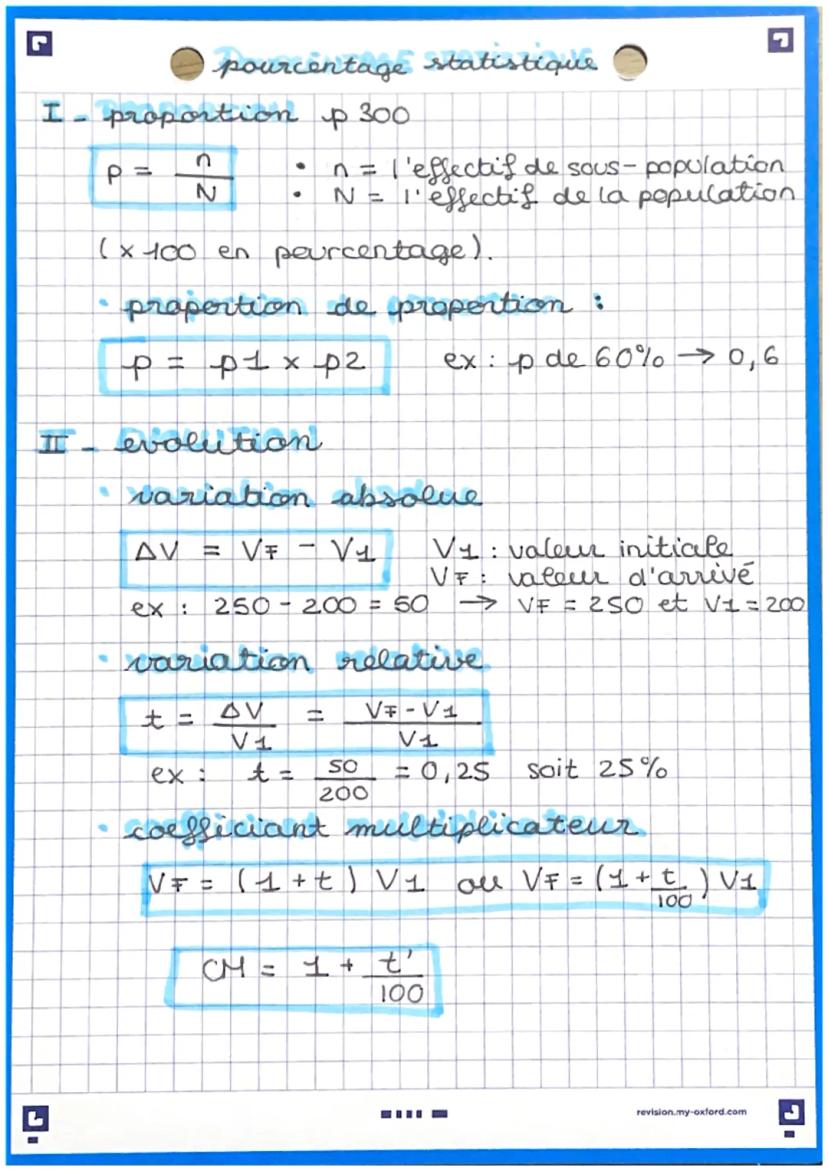 pourcentage statistique
I - proportion p 300
p = n/N
• n = l'effectif de sous-population
• N = l'effectif de la population
(x 100 en pourcentage).
• proportion de proportion :
p = p1 x p2 ex : p de 60% → 0,6
II - evolution
• variation absolue
ΔV = VF - V1 V1 : valeur initiale
VF : valeur d'arrivé
ex : 250 - 200 = 50 → VF = 250 et V1 = 200
• variation relative
t = ΔV/V1 = VF-V1/V1
ex : t = 50/200 = 0,25 soit 25%
• coefficiant multiplicateur
VF = (1+t) V1 ou VF = (1+t/100) V1
CM = 1 + t'/100
revision.my-oxford.com